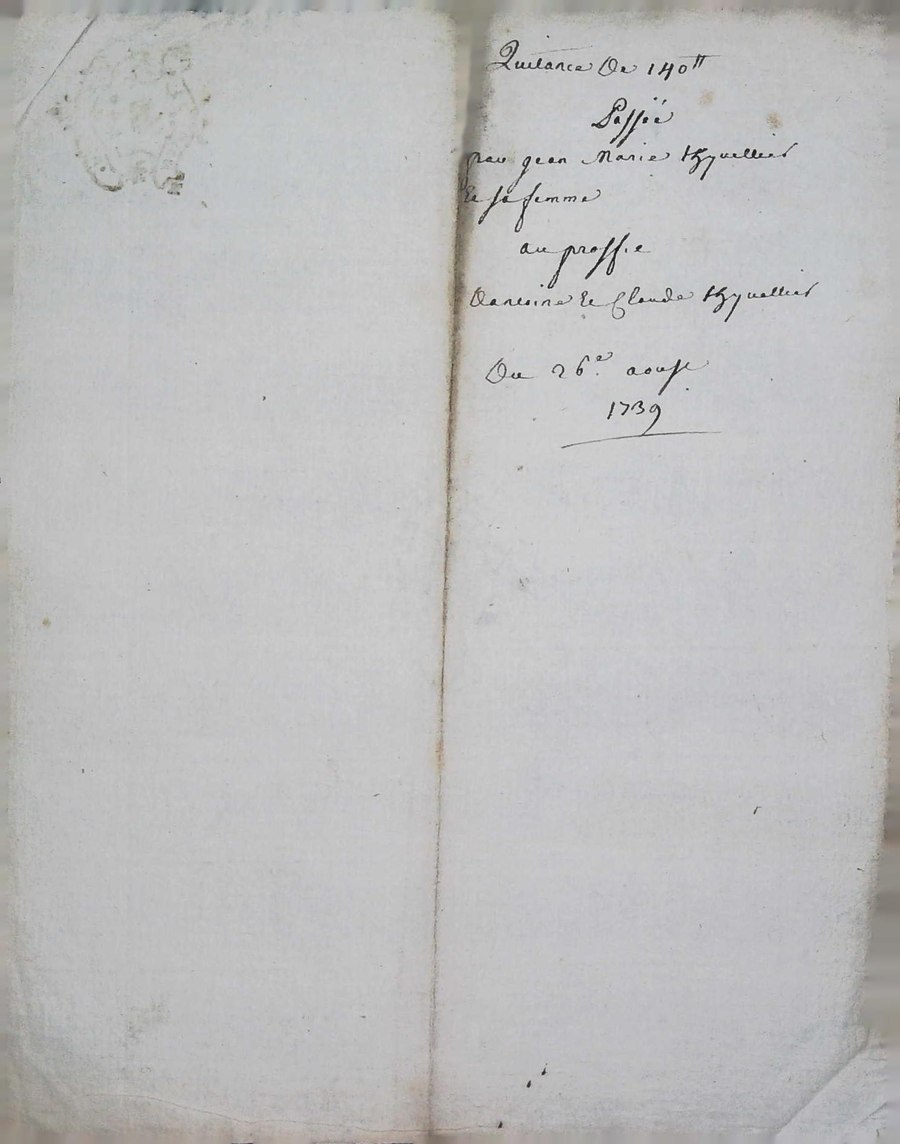 Quitance De 140tt
Passée
par jean Marie Thyvellier
Et sa femme
au proffit
Dantoine Et Claude Thyvellier
Du 26e. aoust
1739